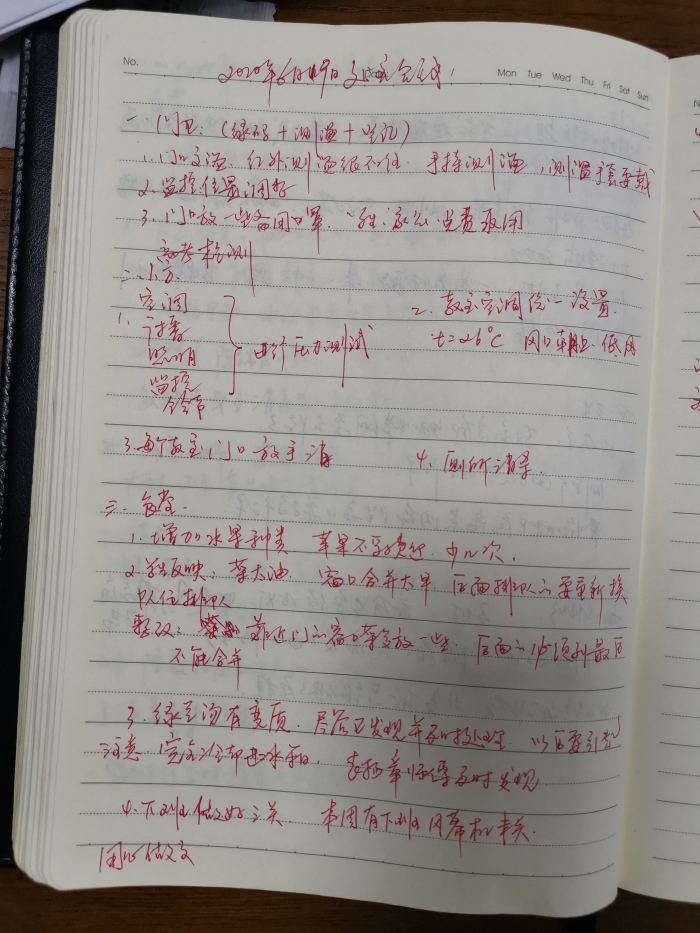 No.
Mon Tue Wed Thu Fri Sat Sun
2020年6月19日 会
一 门卫：（绿码+测温+登记）
1. 门口测温. 红外测温很不准. 手持测温, 测温手套要戴
2. 监控位置调好
3. 门口放一些备用口罩. 免费取用
高考 检测
二. 小方.
空调
1.
照明
监控
铃声
进行压力测试
2. 教室空调统一设置.
t=26℃ 风口朝上. 低风
3. 每个教室门口放手消
4. 厕所消杀.
三. 食堂.
1. 增加水果种类 苹果不受欢迎. 少几次.
2. 反映：菜太油. 窗口合并太早 后面排队的要重新换
队伍排队
整改： 靠近门的窗口菜多放一些. 后面的必须到最后
不能合并
3. 绿豆汤有变质. 尽管已发现并及时处理 以后要引起
注意. 完全冷却 及时发现
4. 下班做好三关. 本周有下班风幕机未关.
用心做文